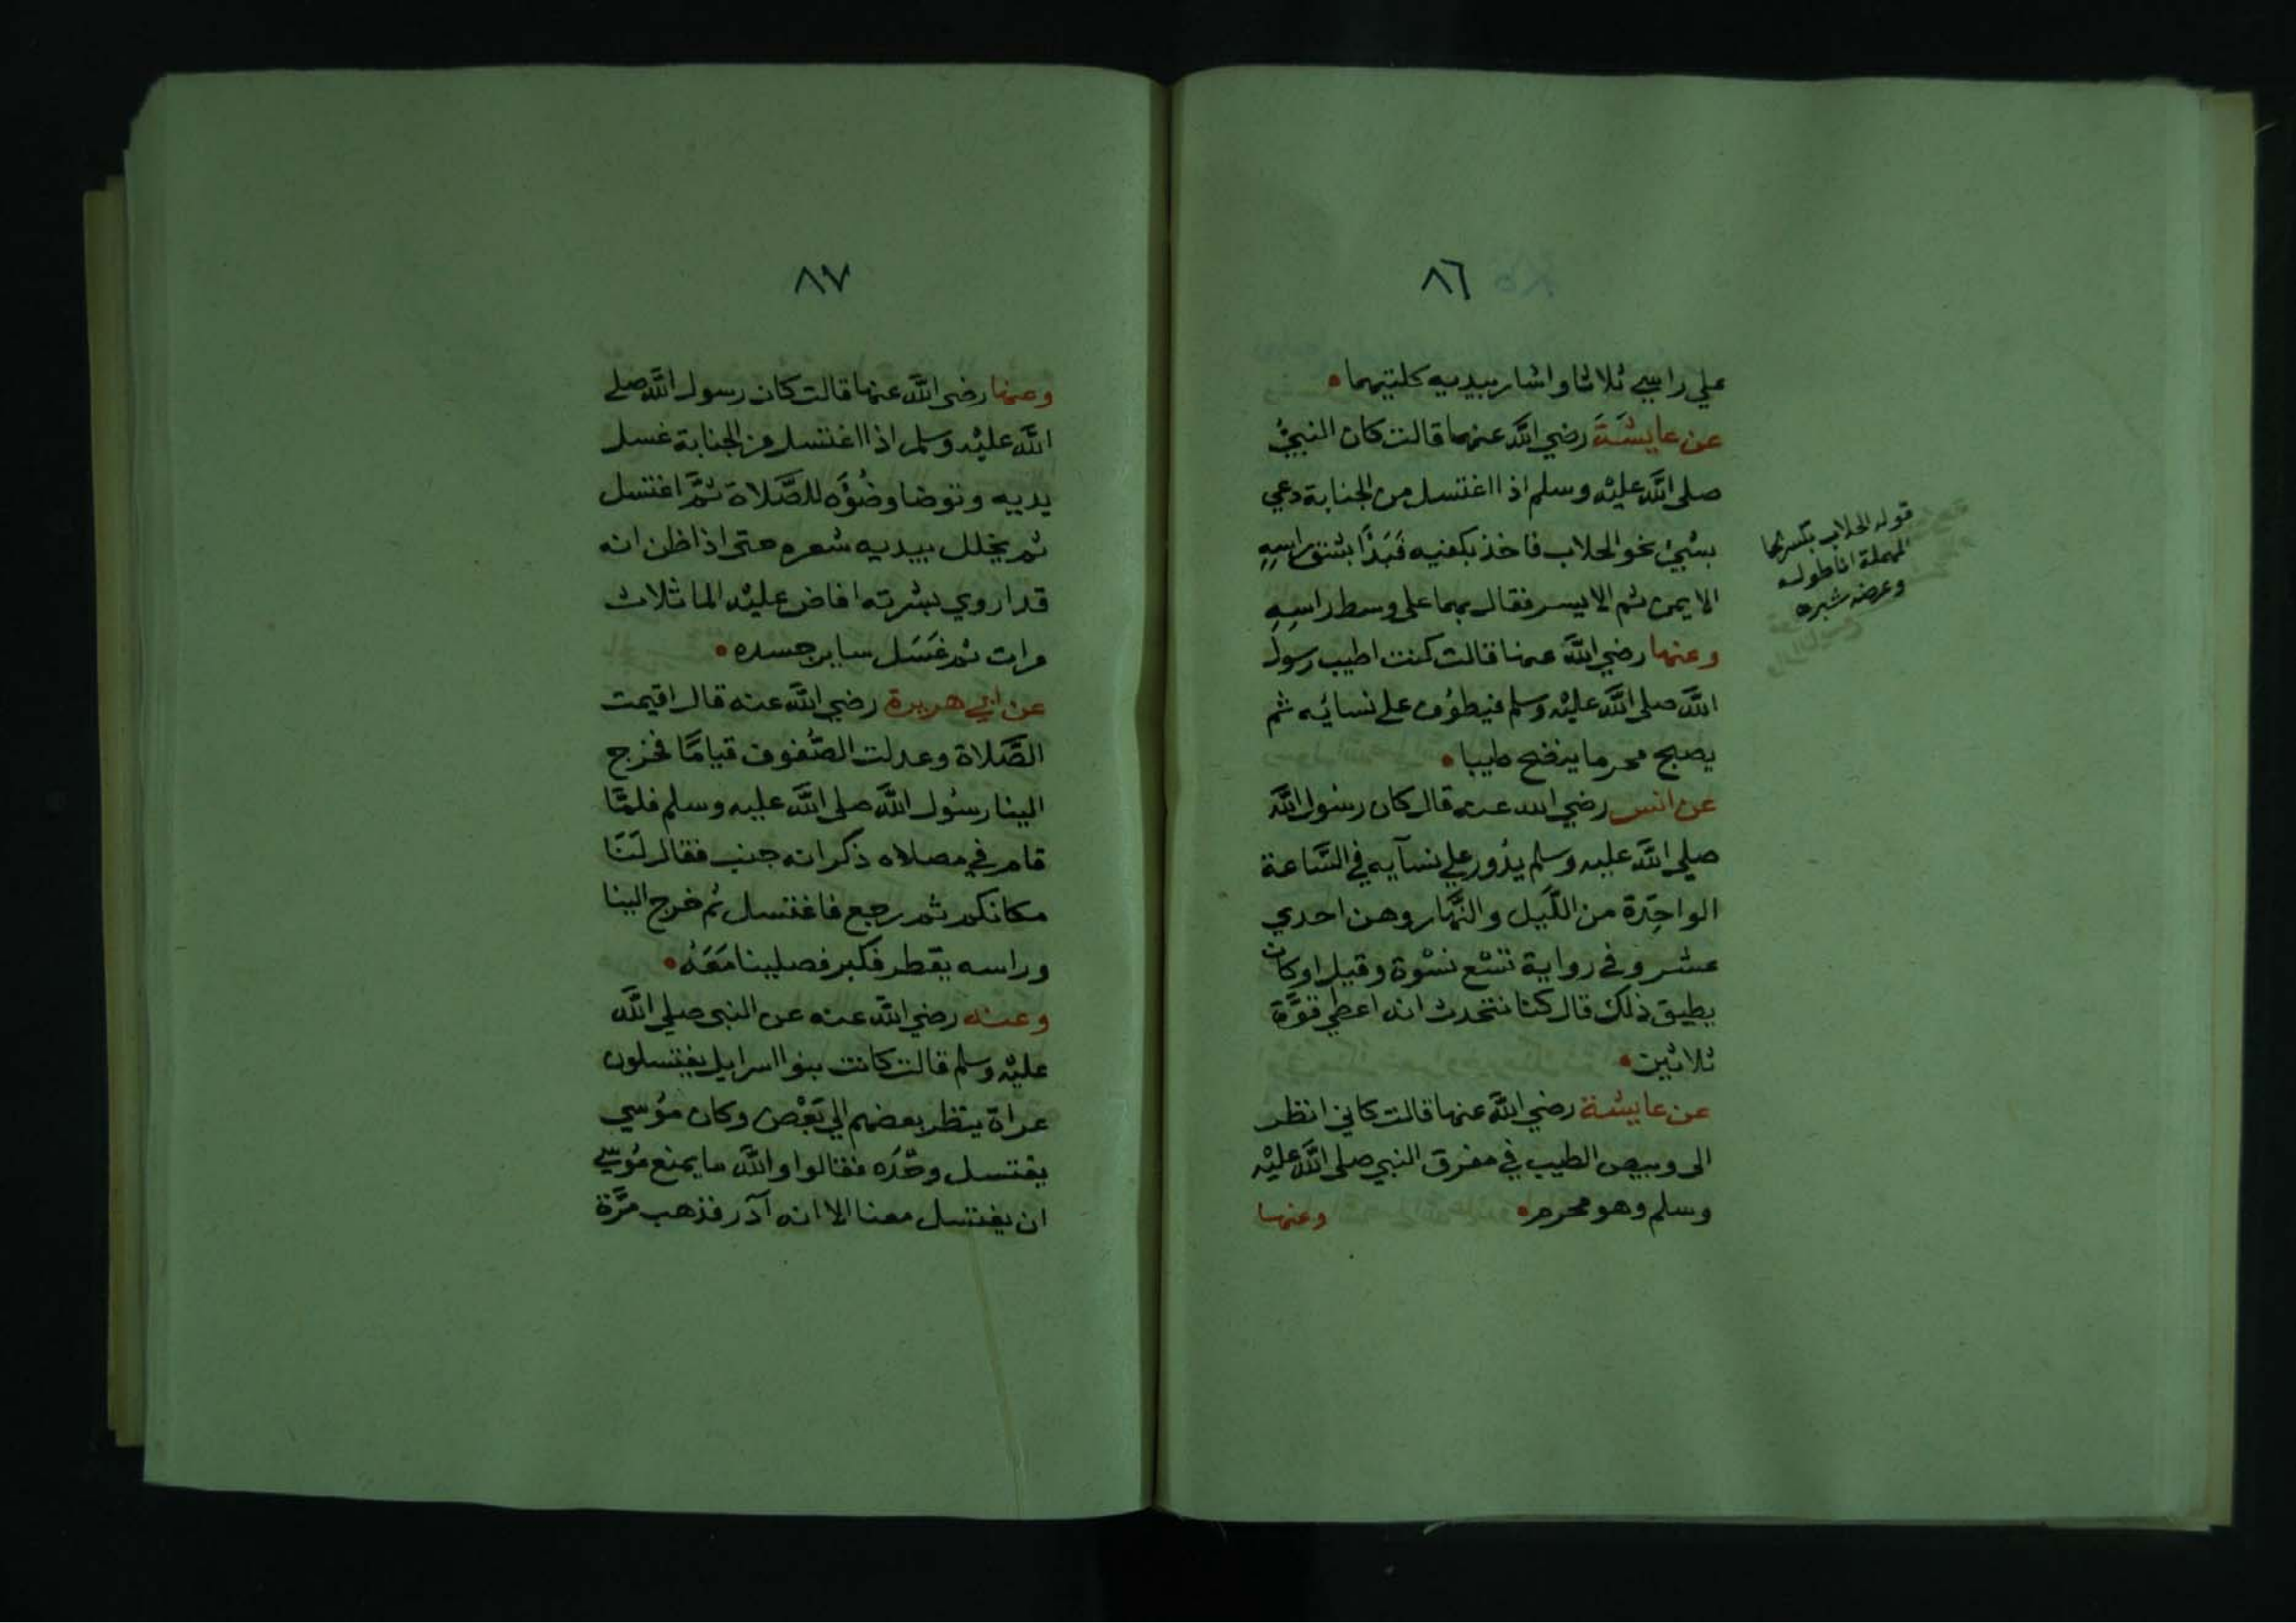 ٨٦
علي راسي ثلاثا واشار بيديه كلتيهما
عن عايشَة رضي اللَّه عنها قالت كان النبيُّ
صلى اللَّه عليْه وسلم اذا اغتسل من الجنابة دعي
بشيئ نحو الحلاب فاخذ بكفيه فَبَدَأ بشق راسِهِ
الايمن ثم الايسر فقال بهما على وسط راسِهِ
وعنها رضي اللَّه عنها قالت كنت اطيب رسول
اللَّه صلى اللَّه عليْه وسلم فيطوُف على نسائِه ثم
يصبح محرما ينضح طيبا
عن انس رضي الله عنه قال كان رسُول اللَّه
صلي اللَّه عليه وسلم يدُور علي نسآيه في السَّاعة
الواحِدة من اللَّيل والنَّهار وهن احدي
عشر وفي رواية تسْع نسْوة وقيل اوكان
يطيق ذلك قال كنا نتحدث انه اعطي قوَّة
ثلاثين
عن عايشة رضي اللَّه عنها قالت كاني انظر
الى وبيص الطيب في مفرق النبي صلى اللَّه عليْه
وسلم وهو محرم وعنها
قوله الحلاب بكسر الحا
المهملة انا طوله
وعرضه شبره
٨٧
وعنها رضي اللَّه عنها قالت كان رسول اللَّه صلى
اللَّه عليْه وسلم اذا اغتسل من الجنابة غسل
يديه وتوضا وضُوَه للصَّلاة ثمَّ اغتسل
ثم يخلل بيديه شعره حتى اذا ظن انه
قد اروي بشرته افاض عليْه الما ثلاث
مرات ثم غَسَل ساير جسده
عن ابي هريرة رضي اللَّه عنه قال اقيمت
الصَّلاة وعدلت الصُّفوف قيامًا فخرج
الينا رسُول اللَّه صلى اللَّه عليه وسلم فلمَّا
قام في مصلاه ذكر انه جنب فقال لَنَا
مكانكم ثم رجع فاغتسل ثم خرج الينا
وراسه يقطر فكبر فصلينا مَعَهُ
وعنه رضي اللَّه عنه عن النبي صلي اللَّه
عليْه وسلم قالت كانت بنوا اسرايل يغتسلون
عراة ينظر بعضهم الي بَعْض وكان موُسي
يغتسل وحْدَه فقالوا واللَّه ما يمنع موُسي
ان يغتسل معنا الا انه آدر فذهب مرَّة